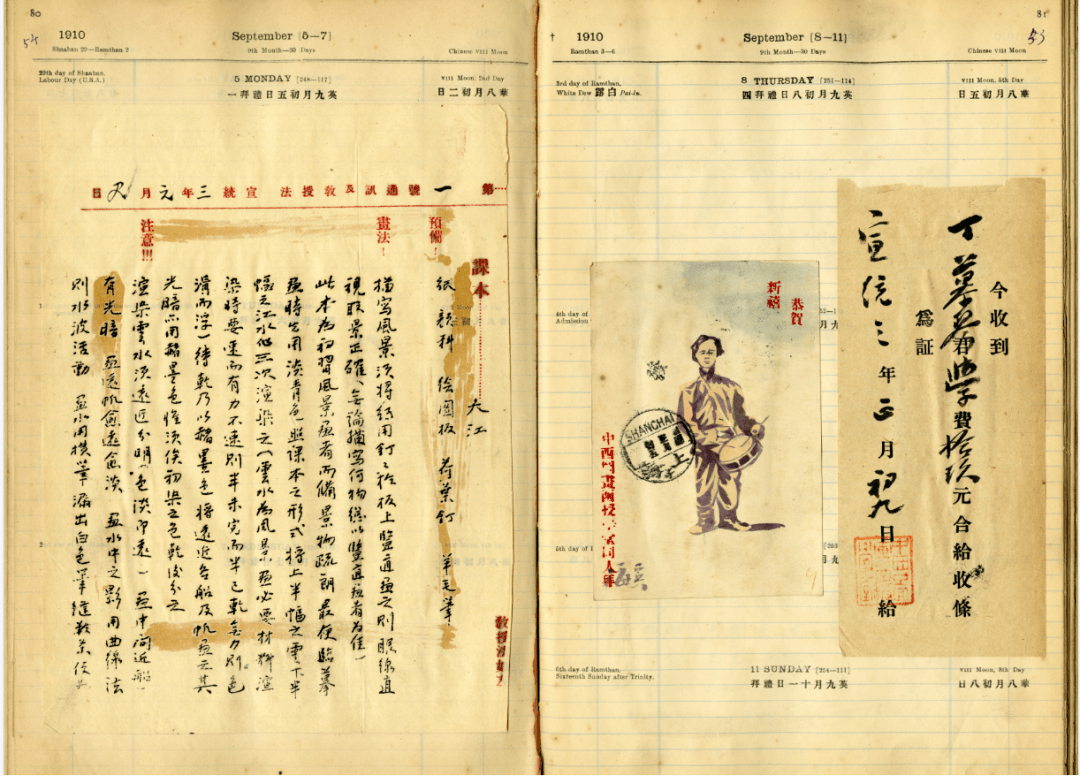 80
54
1910
September [5—7]
9th Month—30 Days
Shaaban 29—Ramthan 2
Chinese VIII Moon
29th day of Shaban.
Labour Day (U.S.A.)
5 MONDAY [248—117]
英九月初五日禮拜一
VIII Moon, 2nd Day
華八月初二日
第一號通訊及敎授法 宣統三年元月 日
課本 大江
預備！
紙 顏料 繪圖板 荷葉釘 羊毛筆
畫法！
描寫風景須將紙用釘釘於板上豎直畫之則眼線直
視取景正確無論描寫何物總以豎直畫者為佳
此本為初習風景畫者而備景物疏朗最便臨摹
畫時公用淡青色照課本之形式將上半幅之雲下半
幅之江水作三次渲染之雲水為風景畫必要材料渲
染時要速而有力不速則半未完而半已乾無力則色
滑而浮一待乾乃以赭墨色將遠近各船及帆畫之其
光暗亦用赭墨色惟須俟初染之色乾後分之
注意!!!
渲染雲水須遠近分明色淡即遠一畫中間近船
有光暗 畫遠帆愈遠愈淡 畫水中之影用曲線法
則水波活動
81
55
1910
September [8—11]
9th Month—30 Days
Ramthan 3—6
Chinese VIII Moon
3rd day of Ramthan.
White Dew 白露 Pai-lu.
8 THURSDAY [251—114]
英九月初八日禮拜四
VIII Moon, 5th Day
華八月初五日
恭賀
新禧
SHANGHAI
上海
今收到
丁慕琴君學費拾玖元合給收條
為証
宣統三年正月初九日給
6th day of Ramthan.
Sixteenth Sunday after Trinity.
11 SUNDAY [254—111]
英九月十一日禮拜
VIII Moon, 8th Day
華八月初八日